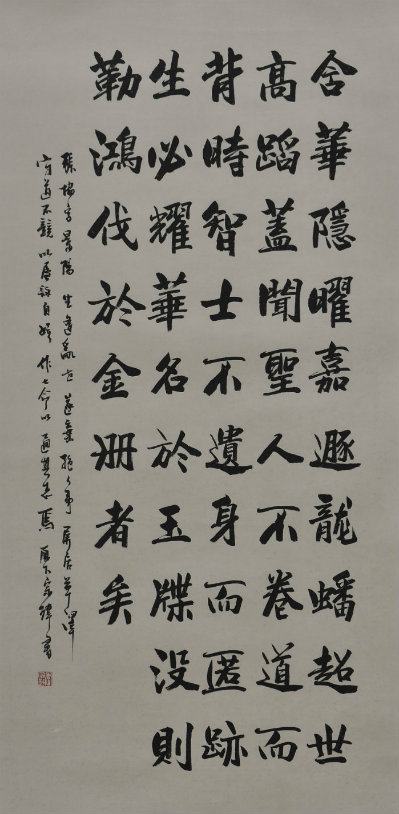 含華隱曜嘉遯龍蟠超世
高蹈蓋聞聖人不卷道而
背時智士不遺身而匿跡
生必耀華名於玉牒没則
勒鴻伐於金册者矣
張協字景陽 生逢亂世 遂棄絕人事 屏居草澤
守道不競 以屬詠自娛 作七命以通其志焉 宗緯書